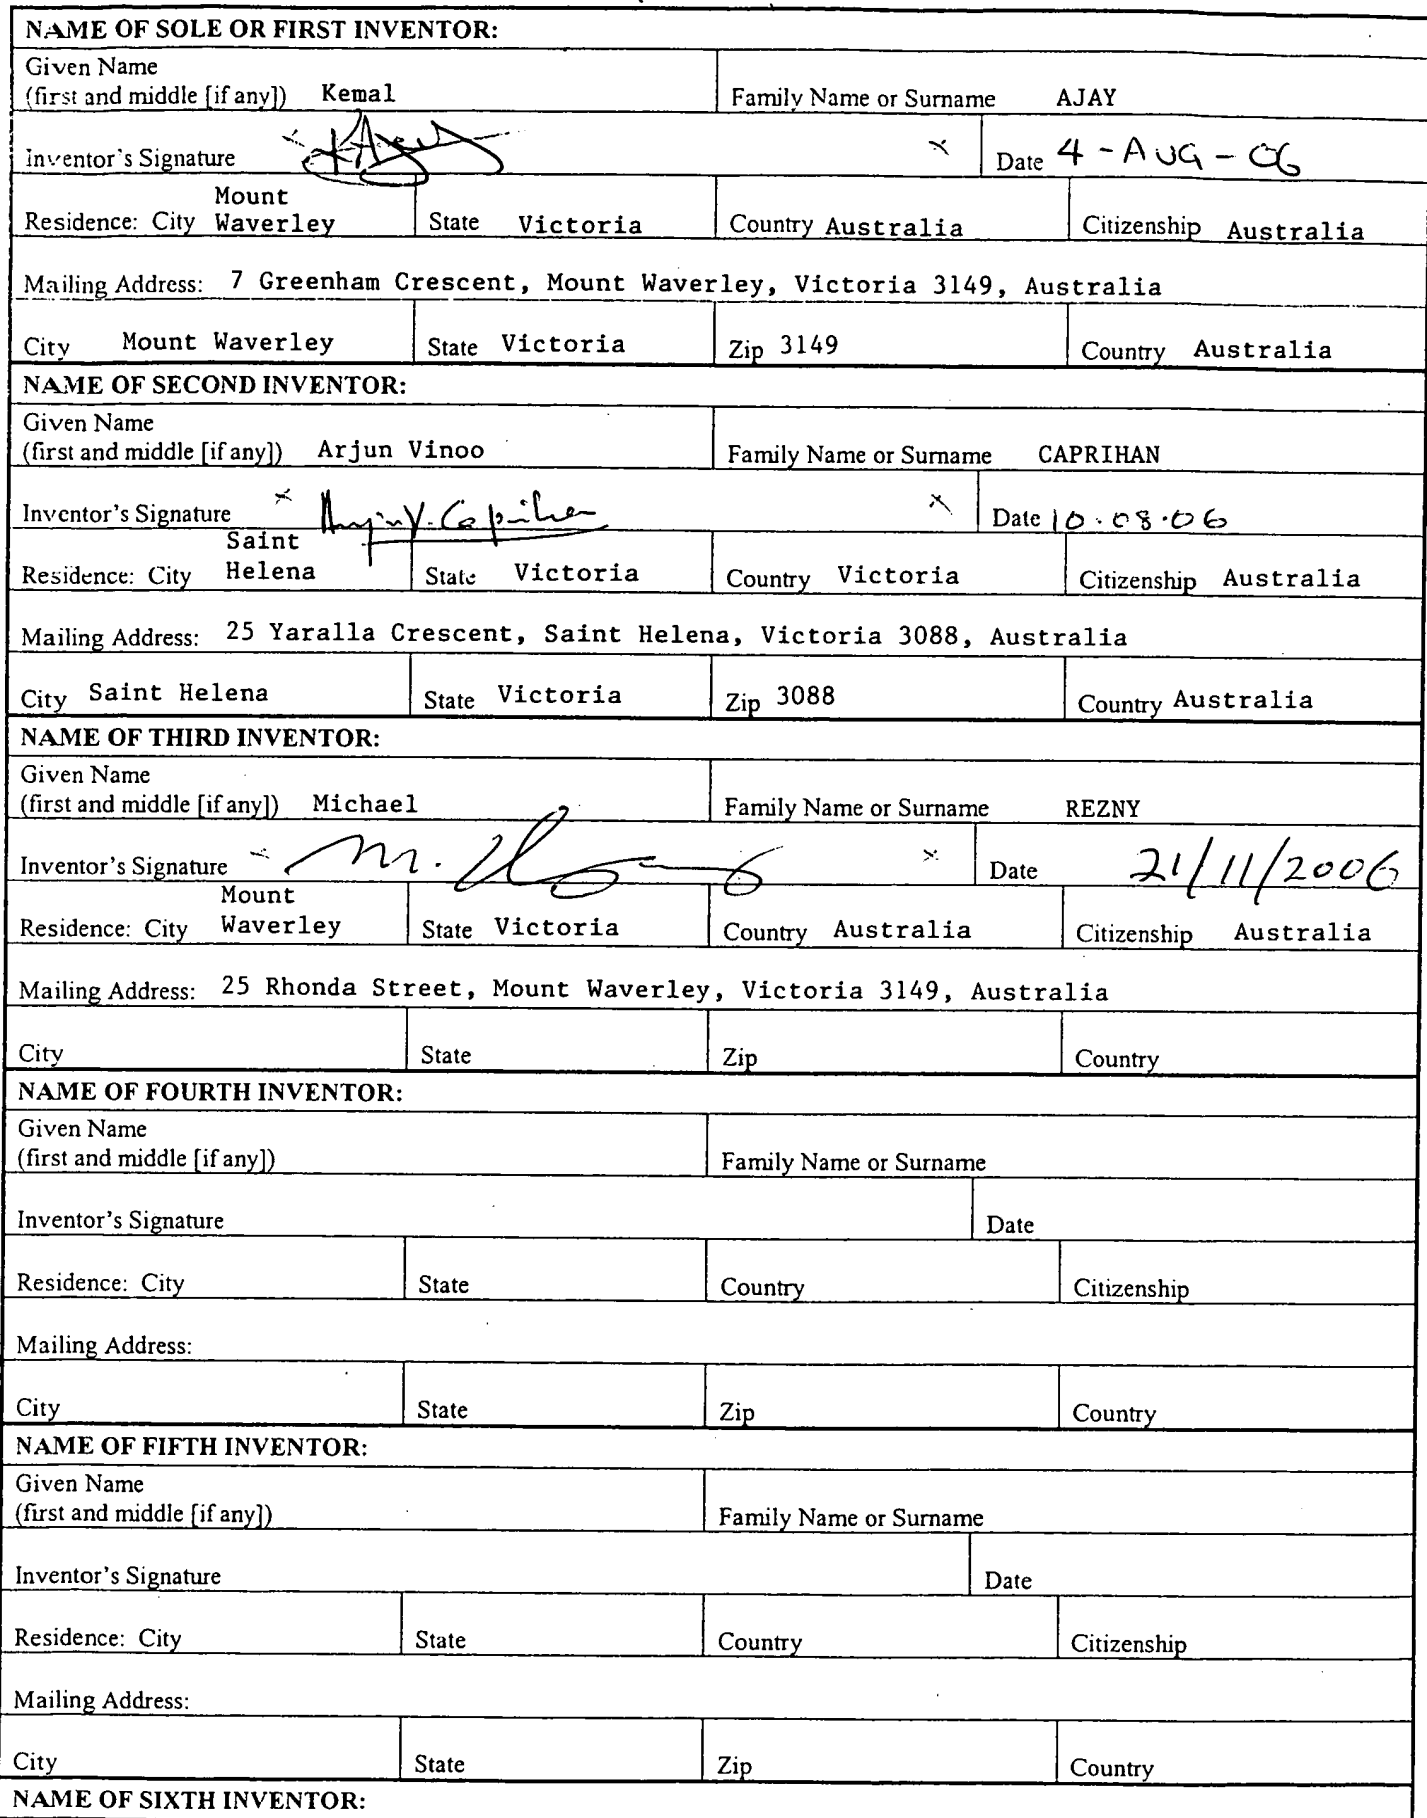 NAME OF SOLE OR FIRST INVENTOR:
Given Name
(first and middle [if any]) Kemal Family Name or Surname AJAY
Inventor's Signature x KAjay x Date 4-AUG-06
Mount
Residence: City Waverley State Victoria Country Australia Citizenship Australia
Mailing Address: 7 Greenham Crescent, Mount Waverley, Victoria 3149, Australia
City Mount Waverley State Victoria Zip 3149 Country Australia
NAME OF SECOND INVENTOR:
Given Name
(first and middle [if any]) Arjun Vinoo Family Name or Surname CAPRIHAN
Inventor's Signature x Arjun V. Caprihan x Date 10.08.06
Saint
Residence: City Helena State Victoria Country Victoria Citizenship Australia
Mailing Address: 25 Yaralla Crescent, Saint Helena, Victoria 3088, Australia
City Saint Helena State Victoria Zip 3088 Country Australia
NAME OF THIRD INVENTOR:
Given Name
(first and middle [if any]) Michael Family Name or Surname REZNY
Inventor's Signature x M. x Date 21/11/2006
Mount
Residence: City Waverley State Victoria Country Australia Citizenship Australia
Mailing Address: 25 Rhonda Street, Mount Waverley, Victoria 3149, Australia
City State Zip Country
NAME OF FOURTH INVENTOR:
Given Name
(first and middle [if any]) Family Name or Surname
Inventor's Signature Date
Residence: City State Country Citizenship
Mailing Address:
City State Zip Country
NAME OF FIFTH INVENTOR:
Given Name
(first and middle [if any]) Family Name or Surname
Inventor's Signature Date
Residence: City State Country Citizenship
Mailing Address:
City State Zip Country
NAME OF SIXTH INVENTOR: